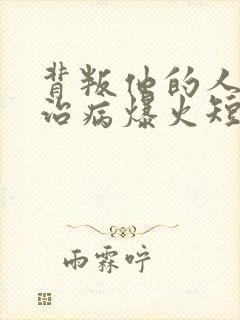 背叛他的人
治病爆火短
雨霖咛